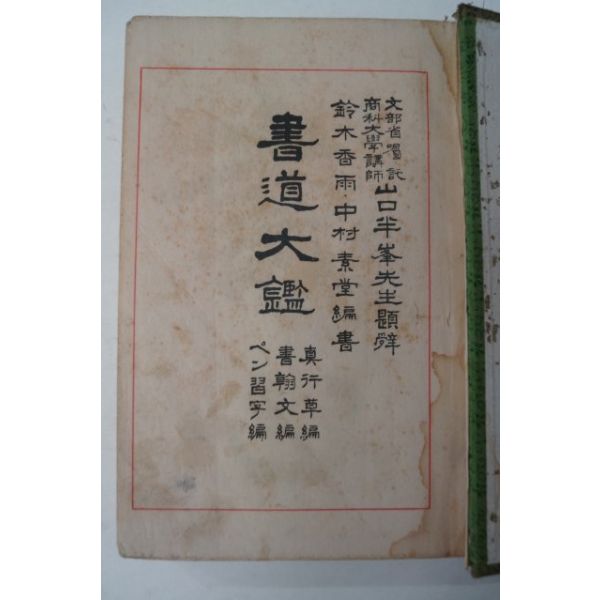 文部省嘱託
商科大學講師
山口半峯先生題辭
鈴木香雨・中村素堂編書
書道大鑑
真行草編
書翰文編
ペン習字編